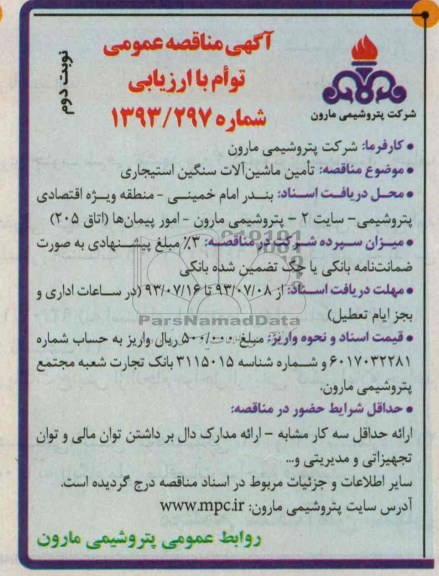 آگهی مناقصه عمومی
توأم با ارزیابی
شماره ۱۳۹۳/۲۹۷
نوبت دوم
شرکت پتروشیمی مارون
• کارفرما: شرکت پتروشیمی مارون
• موضوع مناقصه: تأمین ماشین‌آلات سنگین استیجاری
• محل دریافت اسناد: بندر امام خمینی - منطقه ویژه اقتصادی
پتروشیمی- سایت ۲ - پتروشیمی مارون - امور پیمان‌ها (اتاق ۲۰۵)
• میزان سپرده شرکت در مناقصه: ۳٪ مبلغ پیشنهادی به صورت
ضمانت‌نامه بانکی یا چک تضمین شده بانکی
• مهلت دریافت اسناد: از ۹۳/۰۷/۰۸ تا ۹۳/۰۷/۱۶ (در ساعات اداری و
بجز ایام تعطیل)
ParsNamadData
• قیمت اسناد و نحوه واریز: مبلغ ۵۰۰/۰۰۰ ریال واریز به حساب شماره
۶۰۱۷۰۳۲۲۸۱ و شماره شناسه ۳۱۱۵۰۱۵ بانک تجارت شعبه مجتمع
پتروشیمی مارون.
• حداقل شرایط حضور در مناقصه:
ارائه حداقل سه کار مشابه - ارائه مدارک دال بر داشتن توان مالی و توان
تجهیزاتی و مدیریتی و...
سایر اطلاعات و جزئیات مربوط در اسناد مناقصه درج گردیده است.
آدرس سایت پتروشیمی مارون: www.mpc.ir
روابط عمومی پتروشیمی مارون